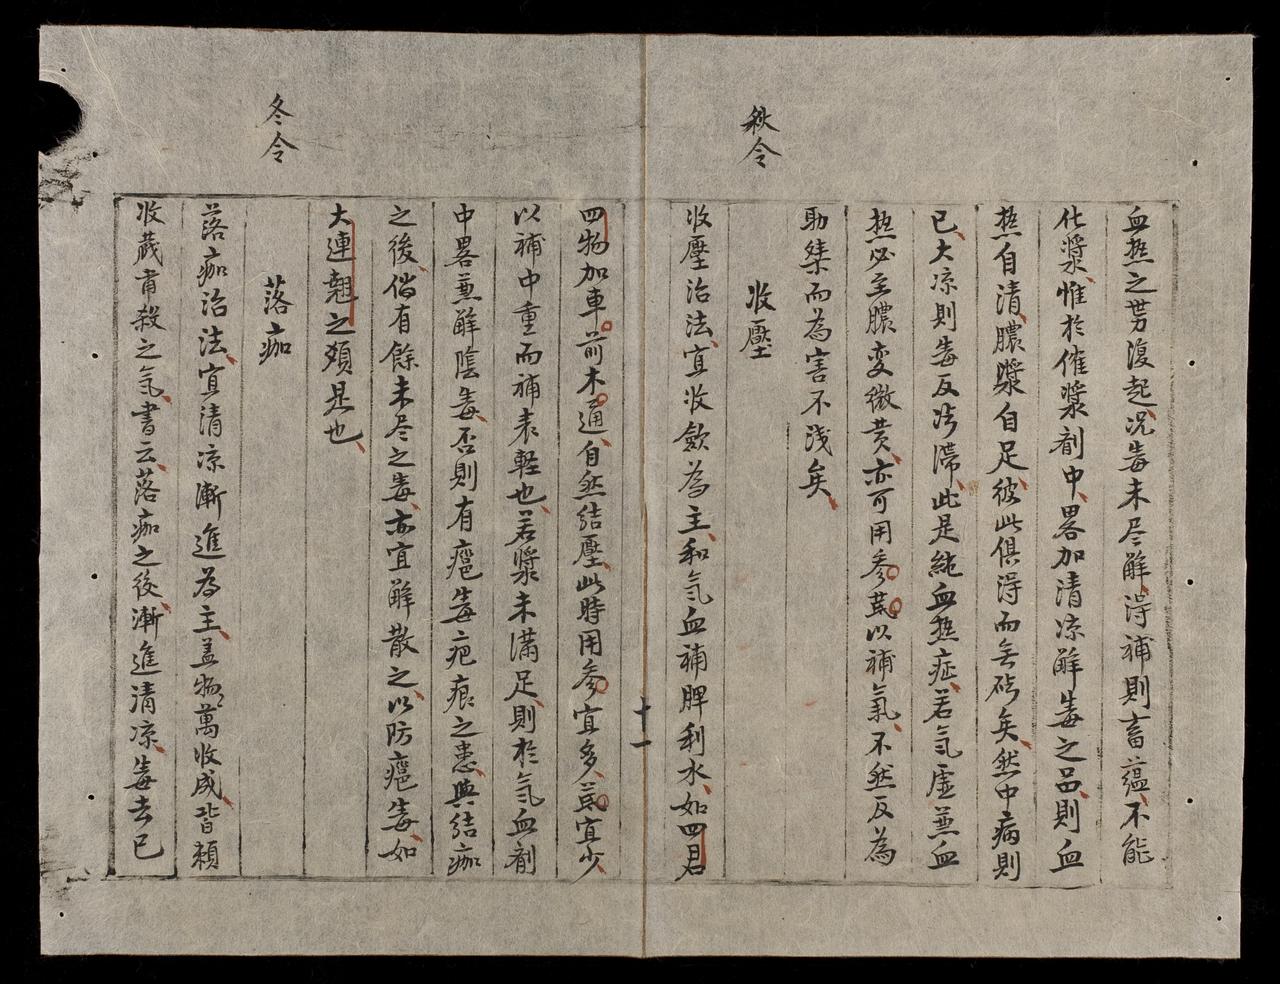 血热之势復起况毒未尽觧淂補則畜蕴不能
化漿惟於催漿剤中畧加清凉觧毒之品則血
热自清膿漿自足彼此俱淂而无砖矣然中病則
已大凉則毒反冴滞此是純血热症若氣虚兼血
热必主膿变微黄亦可用参芪以補氣不然反為
助桀而為害不浅矣
秋令
收壓
收壓治法宜收斂為主和氣血補脾利水如四君
十一
四物加車前木通自然结壓此時用参宜多芪宜少
以補中重而補表軽也若漿未满足則於氣血剤
中畧兼觧陰毒否則有瘟毒疤痕之患與结痂
之後偹有餘未尽之毒亦宜觧散之以防瘟毒如
大連翹之類是也
冬令
落痂
落痂治法宜清凉漸進為主盖物萬收成皆頼
收蔵肃殺之氣書云落痂之後漸進清凉毒去已